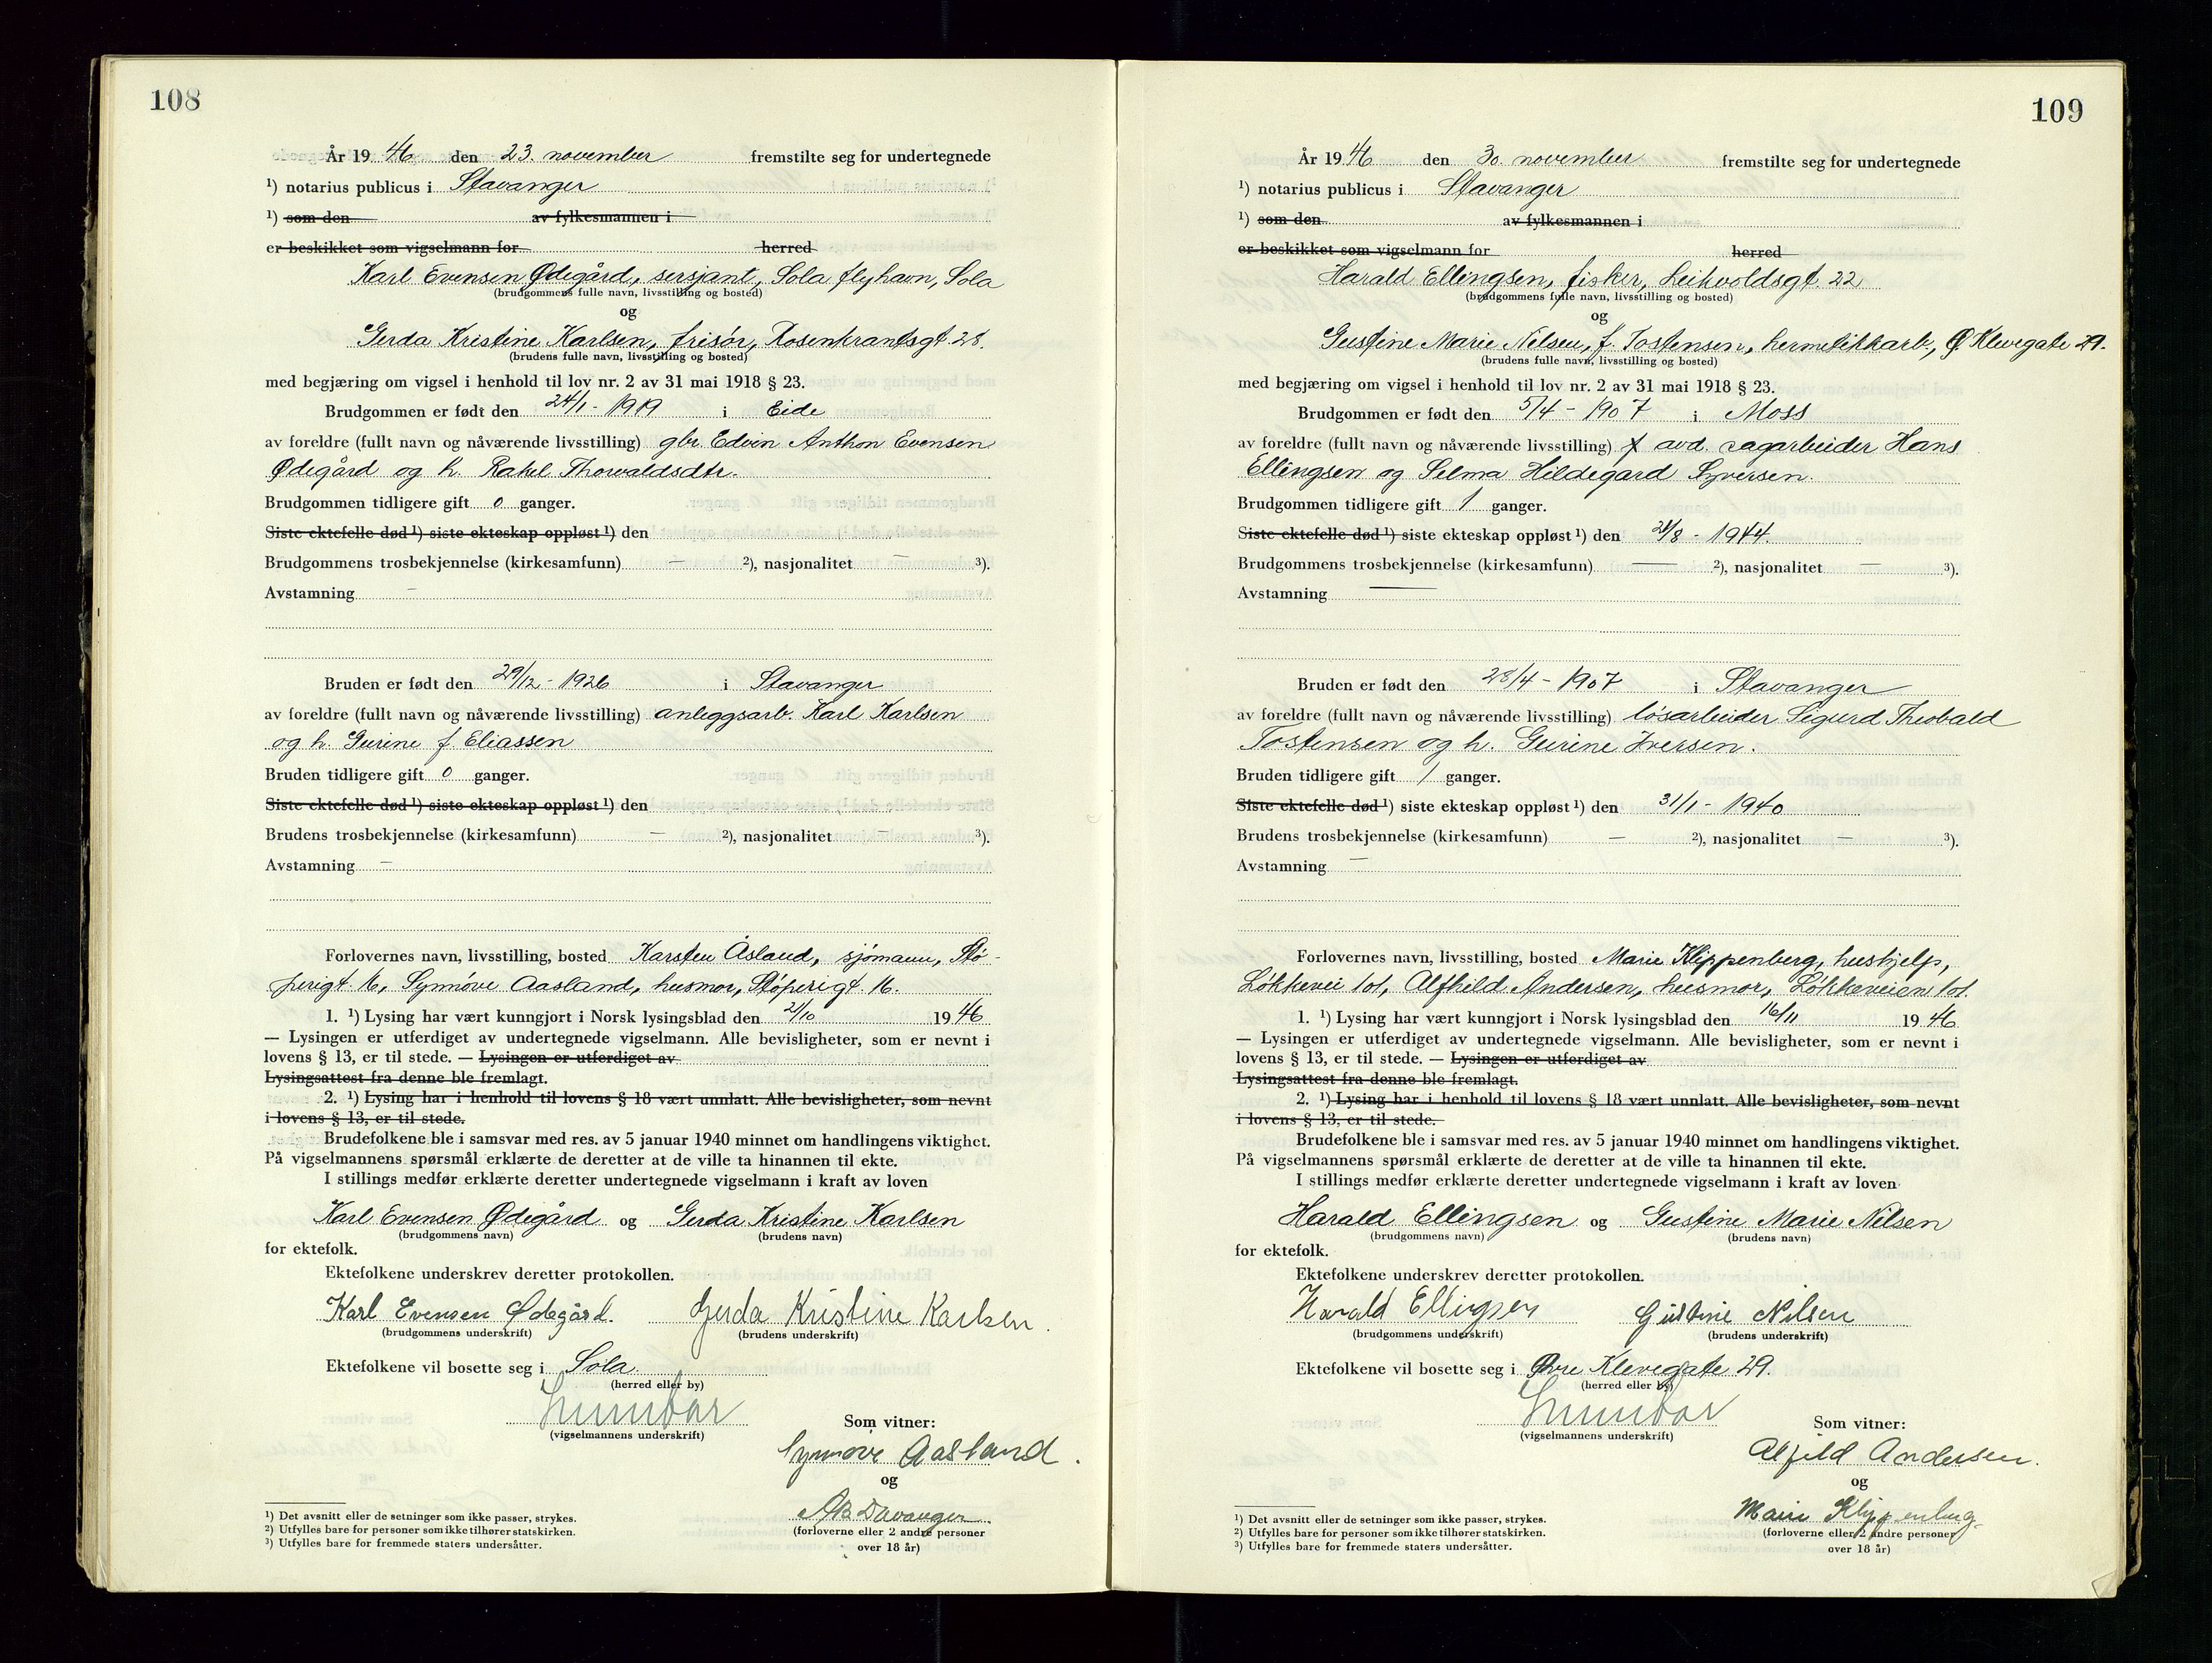 108
År 19 46 den 23. november fremstilte seg for undertegnede
¹) notarius publicus i Stavanger
¹) som den av fylkesmannen i
er beskikket som vigselmann for herred
Karl Evensen Ødegård, sersjant, Sola flyhavn, Sola
(brudgommens fulle navn, livsstilling og bosted)
og
Gerda Kristine Karlsen, frisør, Rosenkrantsgt. 28.
(brudens fulle navn, livsstilling og bosted)
med begjæring om vigsel i henhold til lov nr. 2 av 31 mai 1918 § 23.
Brudgommen er født den 24/1 - 1919 i Eide
av foreldre (fullt navn og nåværende livsstilling) gbr. Edvin Anthon Evensen
Ødegård og h. Rakel Thorvaldsdtr.
Brudgommen tidligere gift 0 ganger.
Siste ektefelle død ¹) siste ekteskap oppløst ¹) den
Brudgommens trosbekjennelse (kirkesamfunn) — ²), nasjonalitet — ³).
Avstamning —
Bruden er født den 29/12 - 1926 i Stavanger
av foreldre (fullt navn og nåværende livsstilling) anleggsarb. Karl Karlsen
og h. Gurine f. Eliassen
Bruden tidligere gift 0 ganger.
Siste ektefelle død ¹) siste ekteskap oppløst ¹) den
Brudens trosbekjennelse (kirkesamfunn) — ²), nasjonalitet — ³).
Avstamning —
Forlovernes navn, livsstilling, bosted Karsten Åsland, sjømann, Stø-
perigt. 16, Synnøve Aasland, husmor, Støperigt. 16.
1. ¹) Lysing har vært kunngjort i Norsk lysingsblad den 21/10 19 46
— Lysingen er utferdiget av undertegnede vigselmann. Alle bevisligheter, som er nevnt i
lovens § 13, er til stede. — Lysingen er utferdiget av
Lysingsattest fra denne ble fremlagt.
2. ¹) Lysing har i henhold til lovens § 18 vært unnlatt. Alle bevisligheter, som nevnt
i lovens § 13, er til stede.
Brudefolkene ble i samsvar med res. av 5 januar 1940 minnet om handlingens viktighet.
På vigselmannens spørsmål erklærte de deretter at de ville ta hinannen til ekte.
I stillings medfør erklærte deretter undertegnede vigselmann i kraft av loven
Karl Evensen Ødegård og Gerda Kristine Karlsen
(brudgommens navn) (brudens navn)
for ektefolk.
Ektefolkene underskrev deretter protokollen.
Karl Evensen Ødegård. Gerda Kristine Karlsen.
(brudgommens underskrift) (brudens underskrift)
Ektefolkene vil bosette seg i Sola.
(herred eller by)
(vigselmannens underskrift)
Som vitner:
Synnøve Aasland.
og
Davanger.
(forloverne eller 2 andre personer
over 18 år)
¹) Det avsnitt eller de setninger som ikke passer, strykes.
²) Utfylles bare for personer som ikke tilhører statskirken.
³) Utfylles bare for fremmede staters undersåtter.
109
År 19 46 den 30. november fremstilte seg for undertegnede
¹) notarius publicus i Stavanger
¹) som den av fylkesmannen i
er beskikket som vigselmann for herred
Harald Ellingsen, fisker, Leikvoldsgt. 22
(brudgommens fulle navn, livsstilling og bosted)
og
Gustine Marie Nilsen, f. Tostensen, hermetikkarb., Ø. Klevegate 29.
(brudens fulle navn, livsstilling og bosted)
med begjæring om vigsel i henhold til lov nr. 2 av 31 mai 1918 § 23.
Brudgommen er født den 5/4 - 1907 i Moss
av foreldre (fullt navn og nåværende livsstilling) f avd. sagarbeider Hans
Ellingsen og Selma Hildegard Syversen.
Brudgommen tidligere gift 1 ganger.
Siste ektefelle død ¹) siste ekteskap oppløst ¹) den 21/8 - 1944.
Brudgommens trosbekjennelse (kirkesamfunn) — ²), nasjonalitet — ³).
Avstamning —
Bruden er født den 28/4 - 1907 i Stavanger
av foreldre (fullt navn og nåværende livsstilling) løsarbeider Sigurd Theobald
Tostensen og h. Gurine Iversen.
Bruden tidligere gift 1 ganger.
Siste ektefelle død ¹) siste ekteskap oppløst ¹) den 31/1 - 1940
Brudens trosbekjennelse (kirkesamfunn) — ²), nasjonalitet — ³).
Avstamning —
Forlovernes navn, livsstilling, bosted Marie Klippenberg, hushjelp,
Løkkevei 101, Alfhild Andersen, husmor, Løkkeveien 101.
1. ¹) Lysing har vært kunngjort i Norsk lysingsblad den 16/11 19 46
— Lysingen er utferdiget av undertegnede vigselmann. Alle bevisligheter, som er nevnt i
lovens § 13, er til stede. — Lysingen er utferdiget av
Lysingsattest fra denne ble fremlagt.
2. ¹) Lysing har i henhold til lovens § 18 vært unnlatt. Alle bevisligheter, som nevnt
i lovens § 13, er til stede.
Brudefolkene ble i samsvar med res. av 5 januar 1940 minnet om handlingens viktighet.
På vigselmannens spørsmål erklærte de deretter at de ville ta hinannen til ekte.
I stillings medfør erklærte deretter undertegnede vigselmann i kraft av loven
Harald Ellingsen og Gustine Marie Nilsen
(brudgommens navn) (brudens navn)
for ektefolk.
Ektefolkene underskrev deretter protokollen.
Harald Ellingsen Gustine Nilsen
(brudgommens underskrift) (brudens underskrift)
Ektefolkene vil bosette seg i Øvre Klevegate 29.
(herred eller by)
(vigselmannens underskrift)
Som vitner:
Alfild Andersen.
og
Marie Klippenberg.
(forloverne eller 2 andre personer
over 18 år)
¹) Det avsnitt eller de setninger som ikke passer, strykes.
²) Utfylles bare for personer som ikke tilhører statskirken.
³) Utfylles bare for fremmede staters undersåtter.